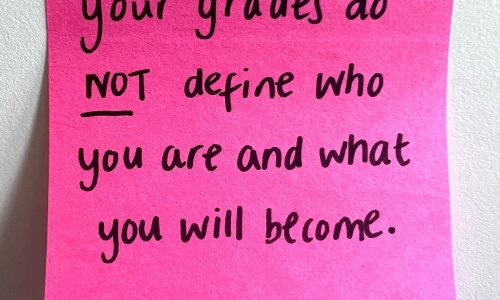 your grades do
NOT define who
you are and what
you will become.